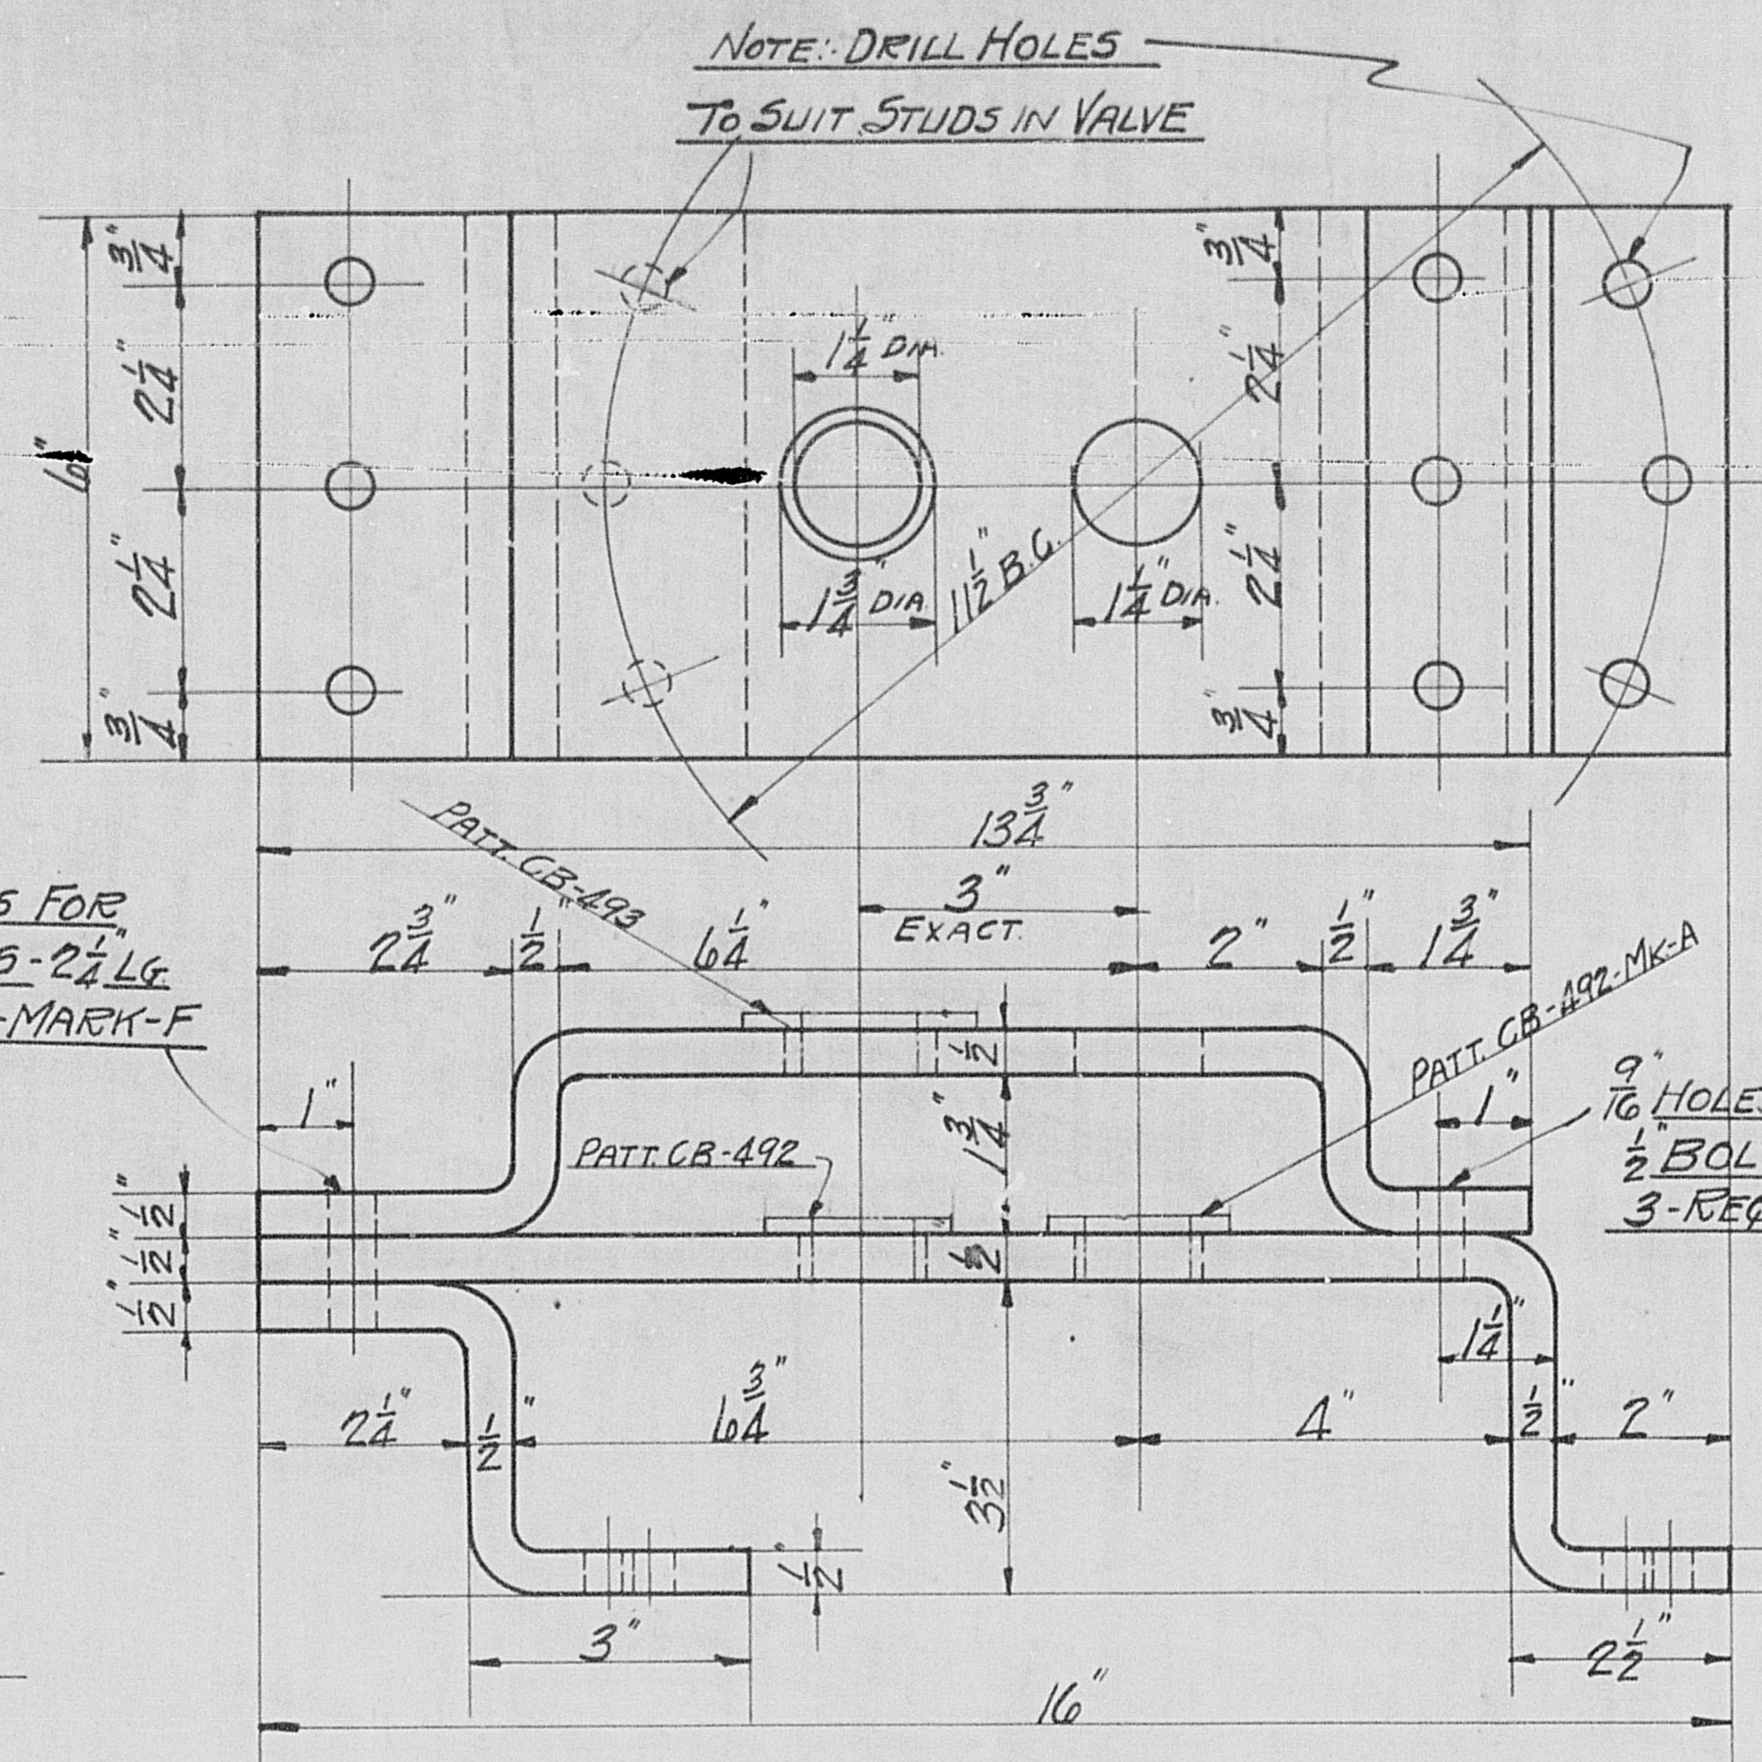 NOTE:- DRILL HOLES
TO SUIT STUDS IN VALVE
3/4"
3/4"
2 1/4"
1 1/4" DIA.
2 1/4"
6"
2 1/4"
1 3/4" DIA.
11 1/2" B.C.
1 1/4" DIA.
2 1/4"
3/4"
3/4"
13 3/4"
PATT. CB-493
3"
EXACT.
2 3/4"
1/2"
6 1/4"
2"
1/2"
1 3/4"
S FOR
S-2 1/4" LG.
-MARK-F
PATT. CB-492-MK-A
1/2"
1"
1 3/4"
1"
9/16" HOLES
1/2" BOL
3-REQ
PATT. CB-492
1/2"
1/2"
1/2"
1/2
1 1/4"
2 1/4"
1/2"
6 3/4"
4"
1/2"
2"
3 1/2"
1/2"
3"
2 1/2"
16"